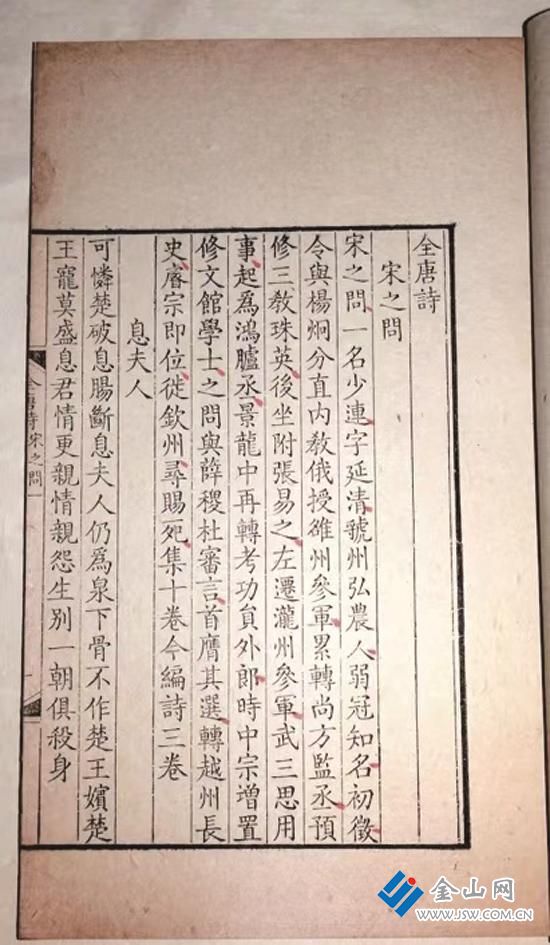 全唐詩
宋之問
宋之問一名少連字延清虢州弘農人弱冠知名初徵
令與楊炯分直內教俄授雒州參軍累轉尚方監丞預
修三教珠英後坐附張易之左遷瀧州參軍武三思用
事起爲鴻臚丞景龍中再轉考功員外郎時中宗增置
修文館學士之問與薛稷杜審言首膺其選轉越州長
史睿宗即位徙欽州尋賜死集十卷今編詩三卷
息夫人
可憐楚破息腸斷息夫人仍爲泉下骨不作楚王嬪楚
王寵莫盛息君情更親情親怨生別一朝俱殺身
全唐詩 宋之問一
金山网
WWW.JSW.COM.CN